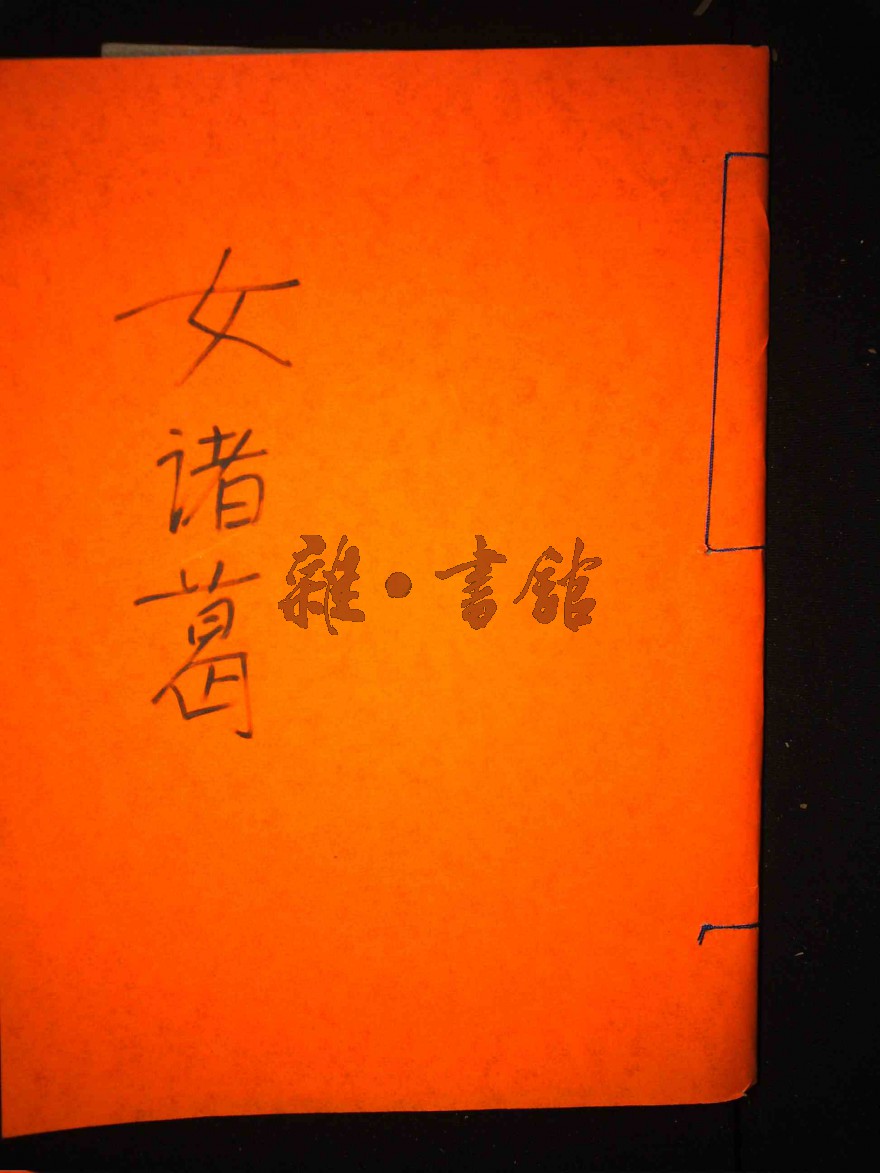 女诸葛
雜·書館